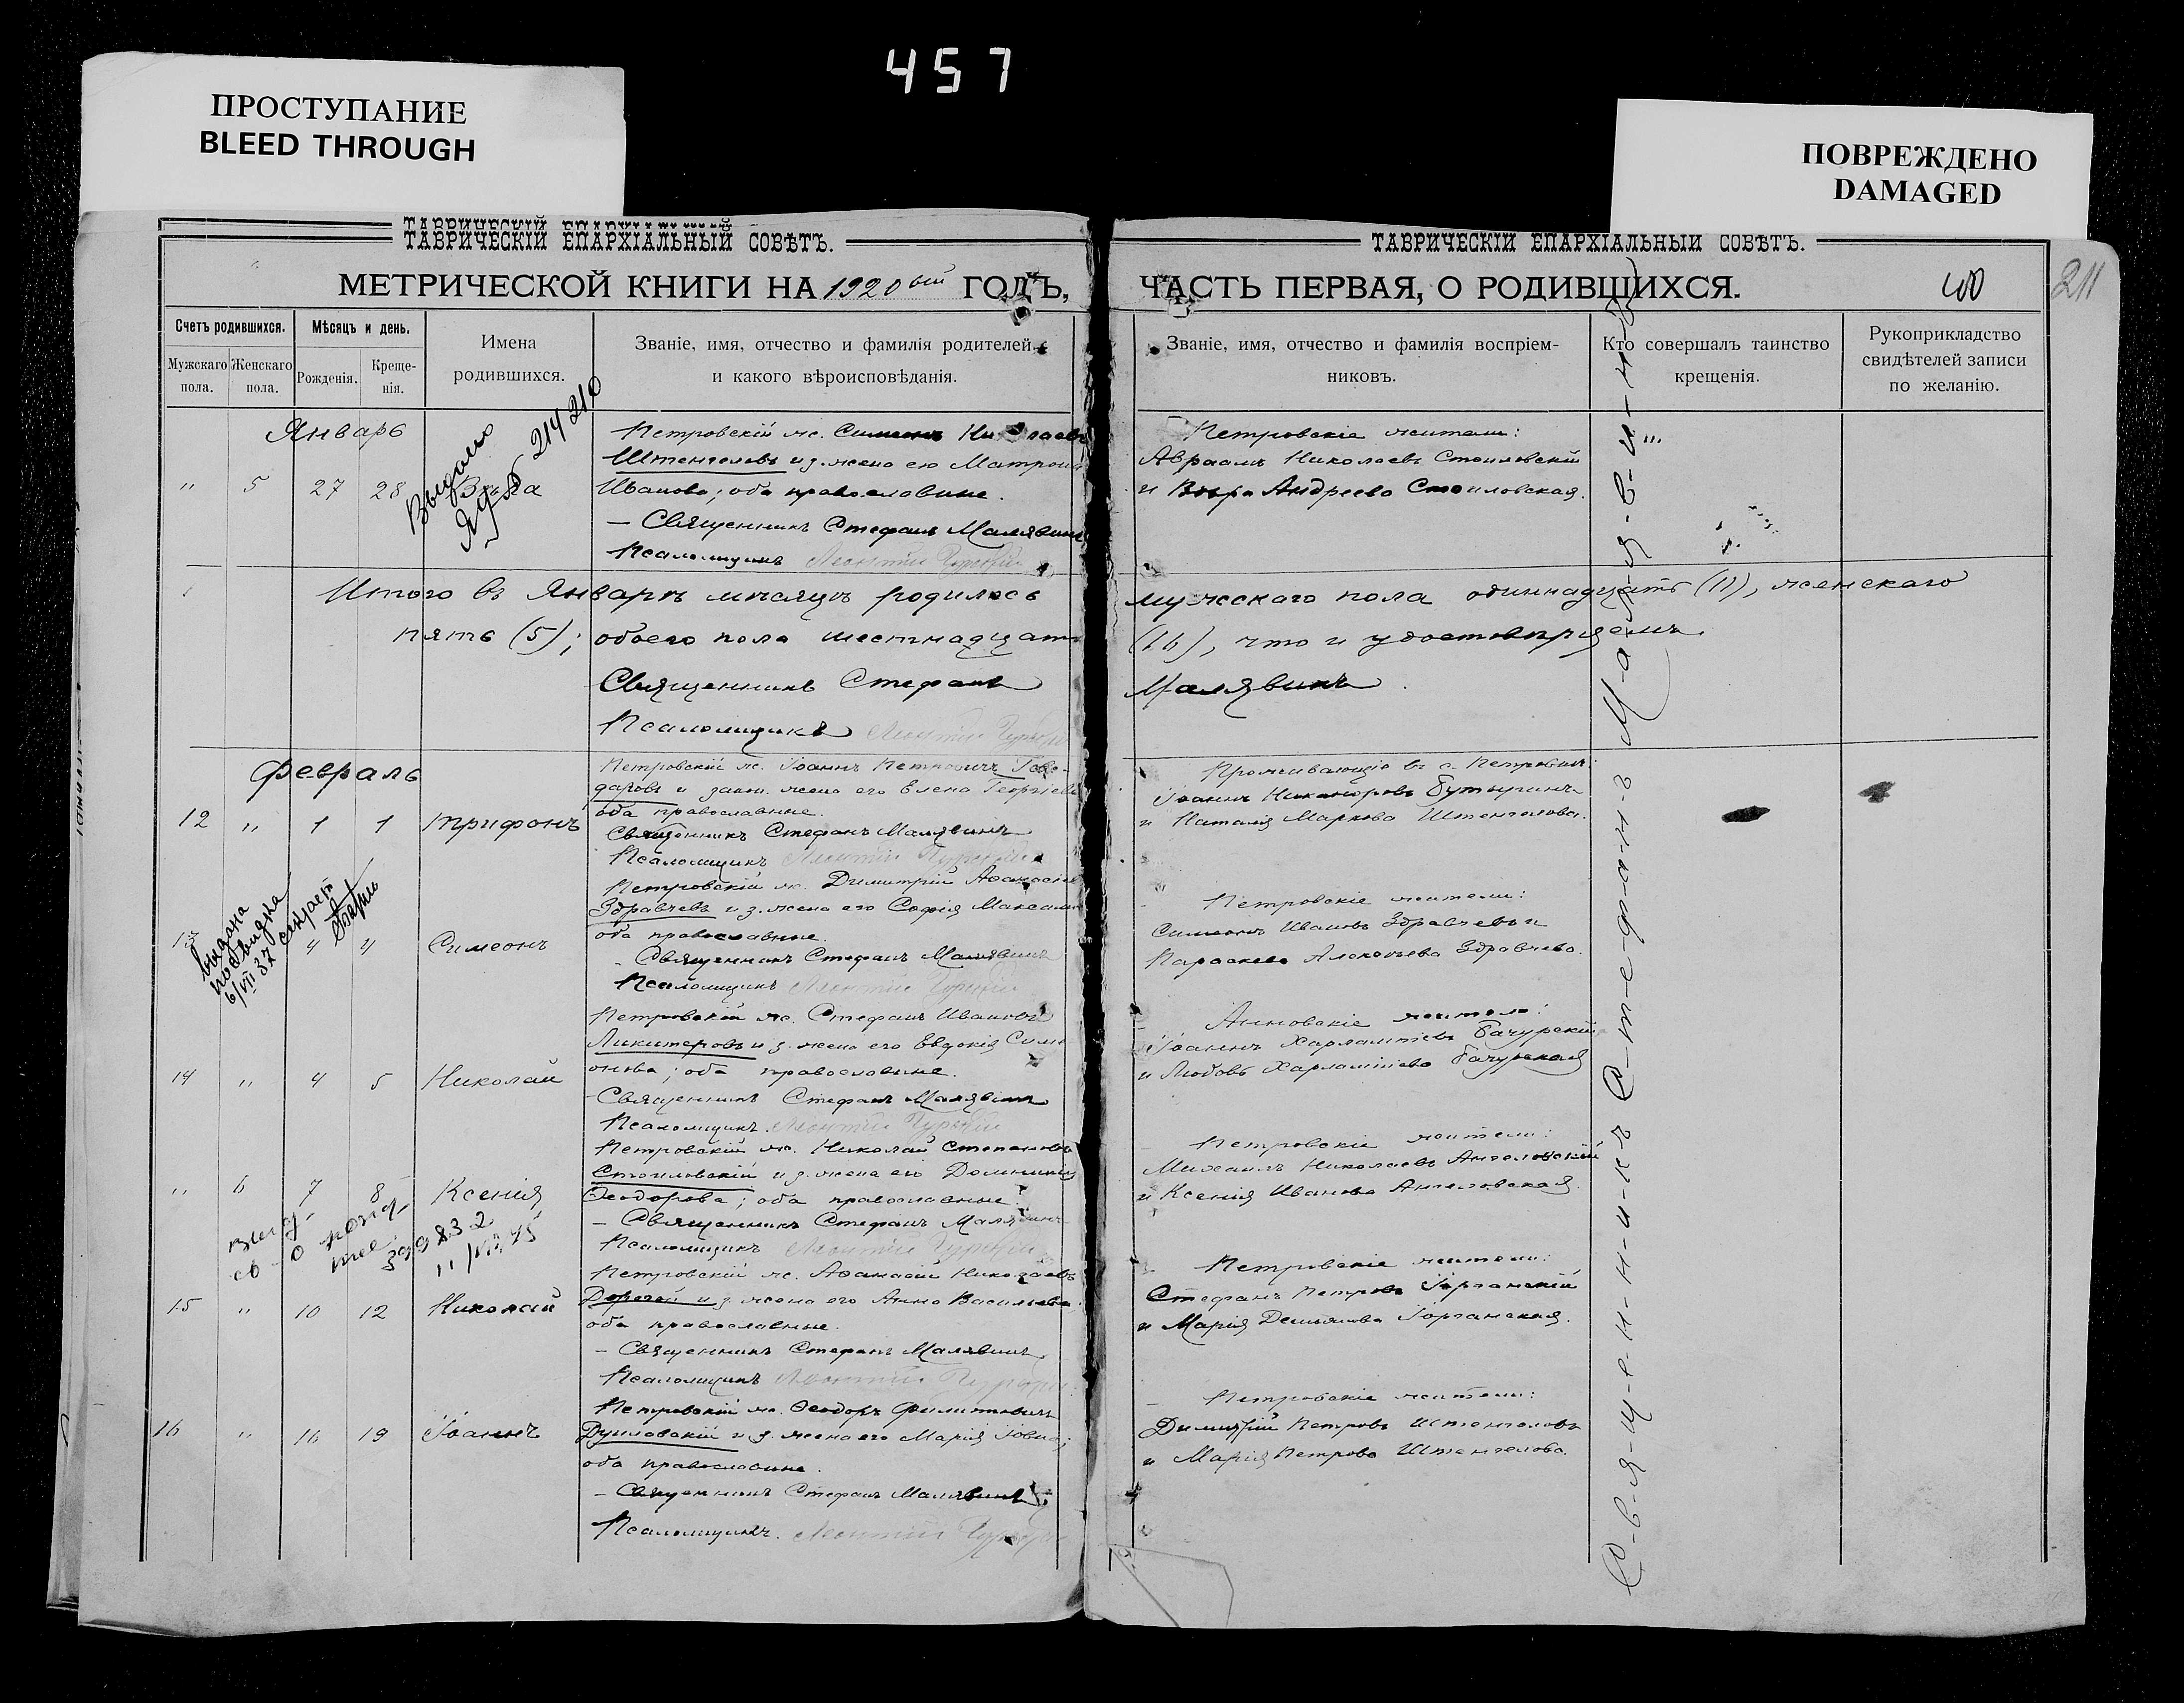 457
ПРОСТУПАНИЕ
BLEED THROUGH
ПОВРЕЖДЕНО
DAMAGED
ТАВРИЧЕСКІЙ ЕПАРХІАЛЬНЫЙ СОВѢТЪ.
МЕТРИЧЕСКОЙ КНИГИ НА 1920 ый ГОДЪ,
Счетъ родившихся.
Мужскаго пола.
Женскаго пола.
Мѣсяцъ и день.
Рожденія.
Крещенія.
Имена
родившихся.
Званіе, имя, отчество и фамилія родителей,
и какого вѣроисповѣданія.
Январь
Выдано
214210
" 5 27 28 Вѣра
Петровскій ж. Симеонъ Николаевъ
Штенгеловъ и з. жена его Матрона
Иванова; оба православные.
– Священникъ Стефанъ Малявинъ
Псаломщикъ Леонтій
Итого въ Январѣ мѣсяцѣ родилось
пять (5); обоего пола шестнадцать
Священникъ Стефанъ
Псаломщикъ Леонтій
Февраль
12 " 1 1 Трифонъ
Петровскій ж. Іоаннъ Петровичъ
и закон. жена его Елена Георгіева
оба православные.
Священникъ Стефанъ Малявинъ
Псаломщикъ Леонтій
выдана
6/VII 37
13 4 4 Симеонъ
Петровскій ж. Димитрій Аѳанасіев
Здравчевъ и з. жена его Софія Максим
оба православные.
– Священникъ Стефанъ Малявинъ
Псаломщикъ Леонтій
14 " 4 5 Николай
Петровскій ж. Стефанъ Ивановъ
Ликитеровъ и з. жена его Евдокія Сим
онова; оба православные.
– Священникъ Стефанъ Малявинъ
Псаломщикъ Леонтій
" 6 7 8 Ксенія
399832
11/VII 45
Петровскій ж. Николай Степановъ
Стоиловскій и з. жена его Домникія
Ѳеодорова; оба православные.
– Священникъ Стефанъ Малявинъ
Псаломщикъ Леонтій
15 " 10 12 Николай
Петровскій ж. Аѳанасій Николаевъ
и з. жена его Анна Васильева;
оба православные.
– Священникъ Стефанъ Малявинъ
Псаломщикъ Леонтій
16 " 16 19 Іоаннъ
Петровскій ж. Ѳеодоръ Филиповичъ
Дуиловскій и з. жена его Марія
оба православные.
– Священникъ Стефанъ Малявинъ
Псаломщикъ. Леонтій
ТАВРИЧЕСКІЙ ЕПАРХІАЛЬНЫЙ СОВѢТЪ.
ЧАСТЬ ПЕРВАЯ, О РОДИВШИХСЯ.
211
Званіе, имя, отчество и фамилія воспріем-
никовъ.
Кто совершалъ таинство
крещенія.
Рукоприкладство
свидѣтелей записи
по желанію.
Петровскіе жители:
Авраамъ Николаевъ Стоиловскій
и Вѣра Андреева Стоиловская.
мужескаго пола одиннадцать (11), женскаго
(16), что и удостовѣряемъ.
Малявинъ.
Проживающіе въ с. Петровкѣ:
Іоаннъ Никаноровъ Бутыринъ
и Наталія Маркова Штенгелова.
Петровскіе жители:
Симеонъ Ивановъ Здравчевъ и
Параскева Алексѣева Здравчева.
Анновскіе жители:
Іоаннъ Харлампіевъ Бачурскій
и Любовь Харлампіева Бачурская
Петровскіе жители:
Михаилъ Николаевъ Ангеловскій
и Ксенія Иванова Ангеловская.
Петровскіе жители:
Стефанъ Петровъ Горганскій
и Марія Демьянова Горганская.
Петровскіе жители:
Димитрій Петровъ Штенгеловъ
и Марія Петрова Штенгелова.
С-в-я-щ-е-н-н-и-к-ъ С-т-е-ф-а-н-ъ М-а-л-я-в-и-н-ъ